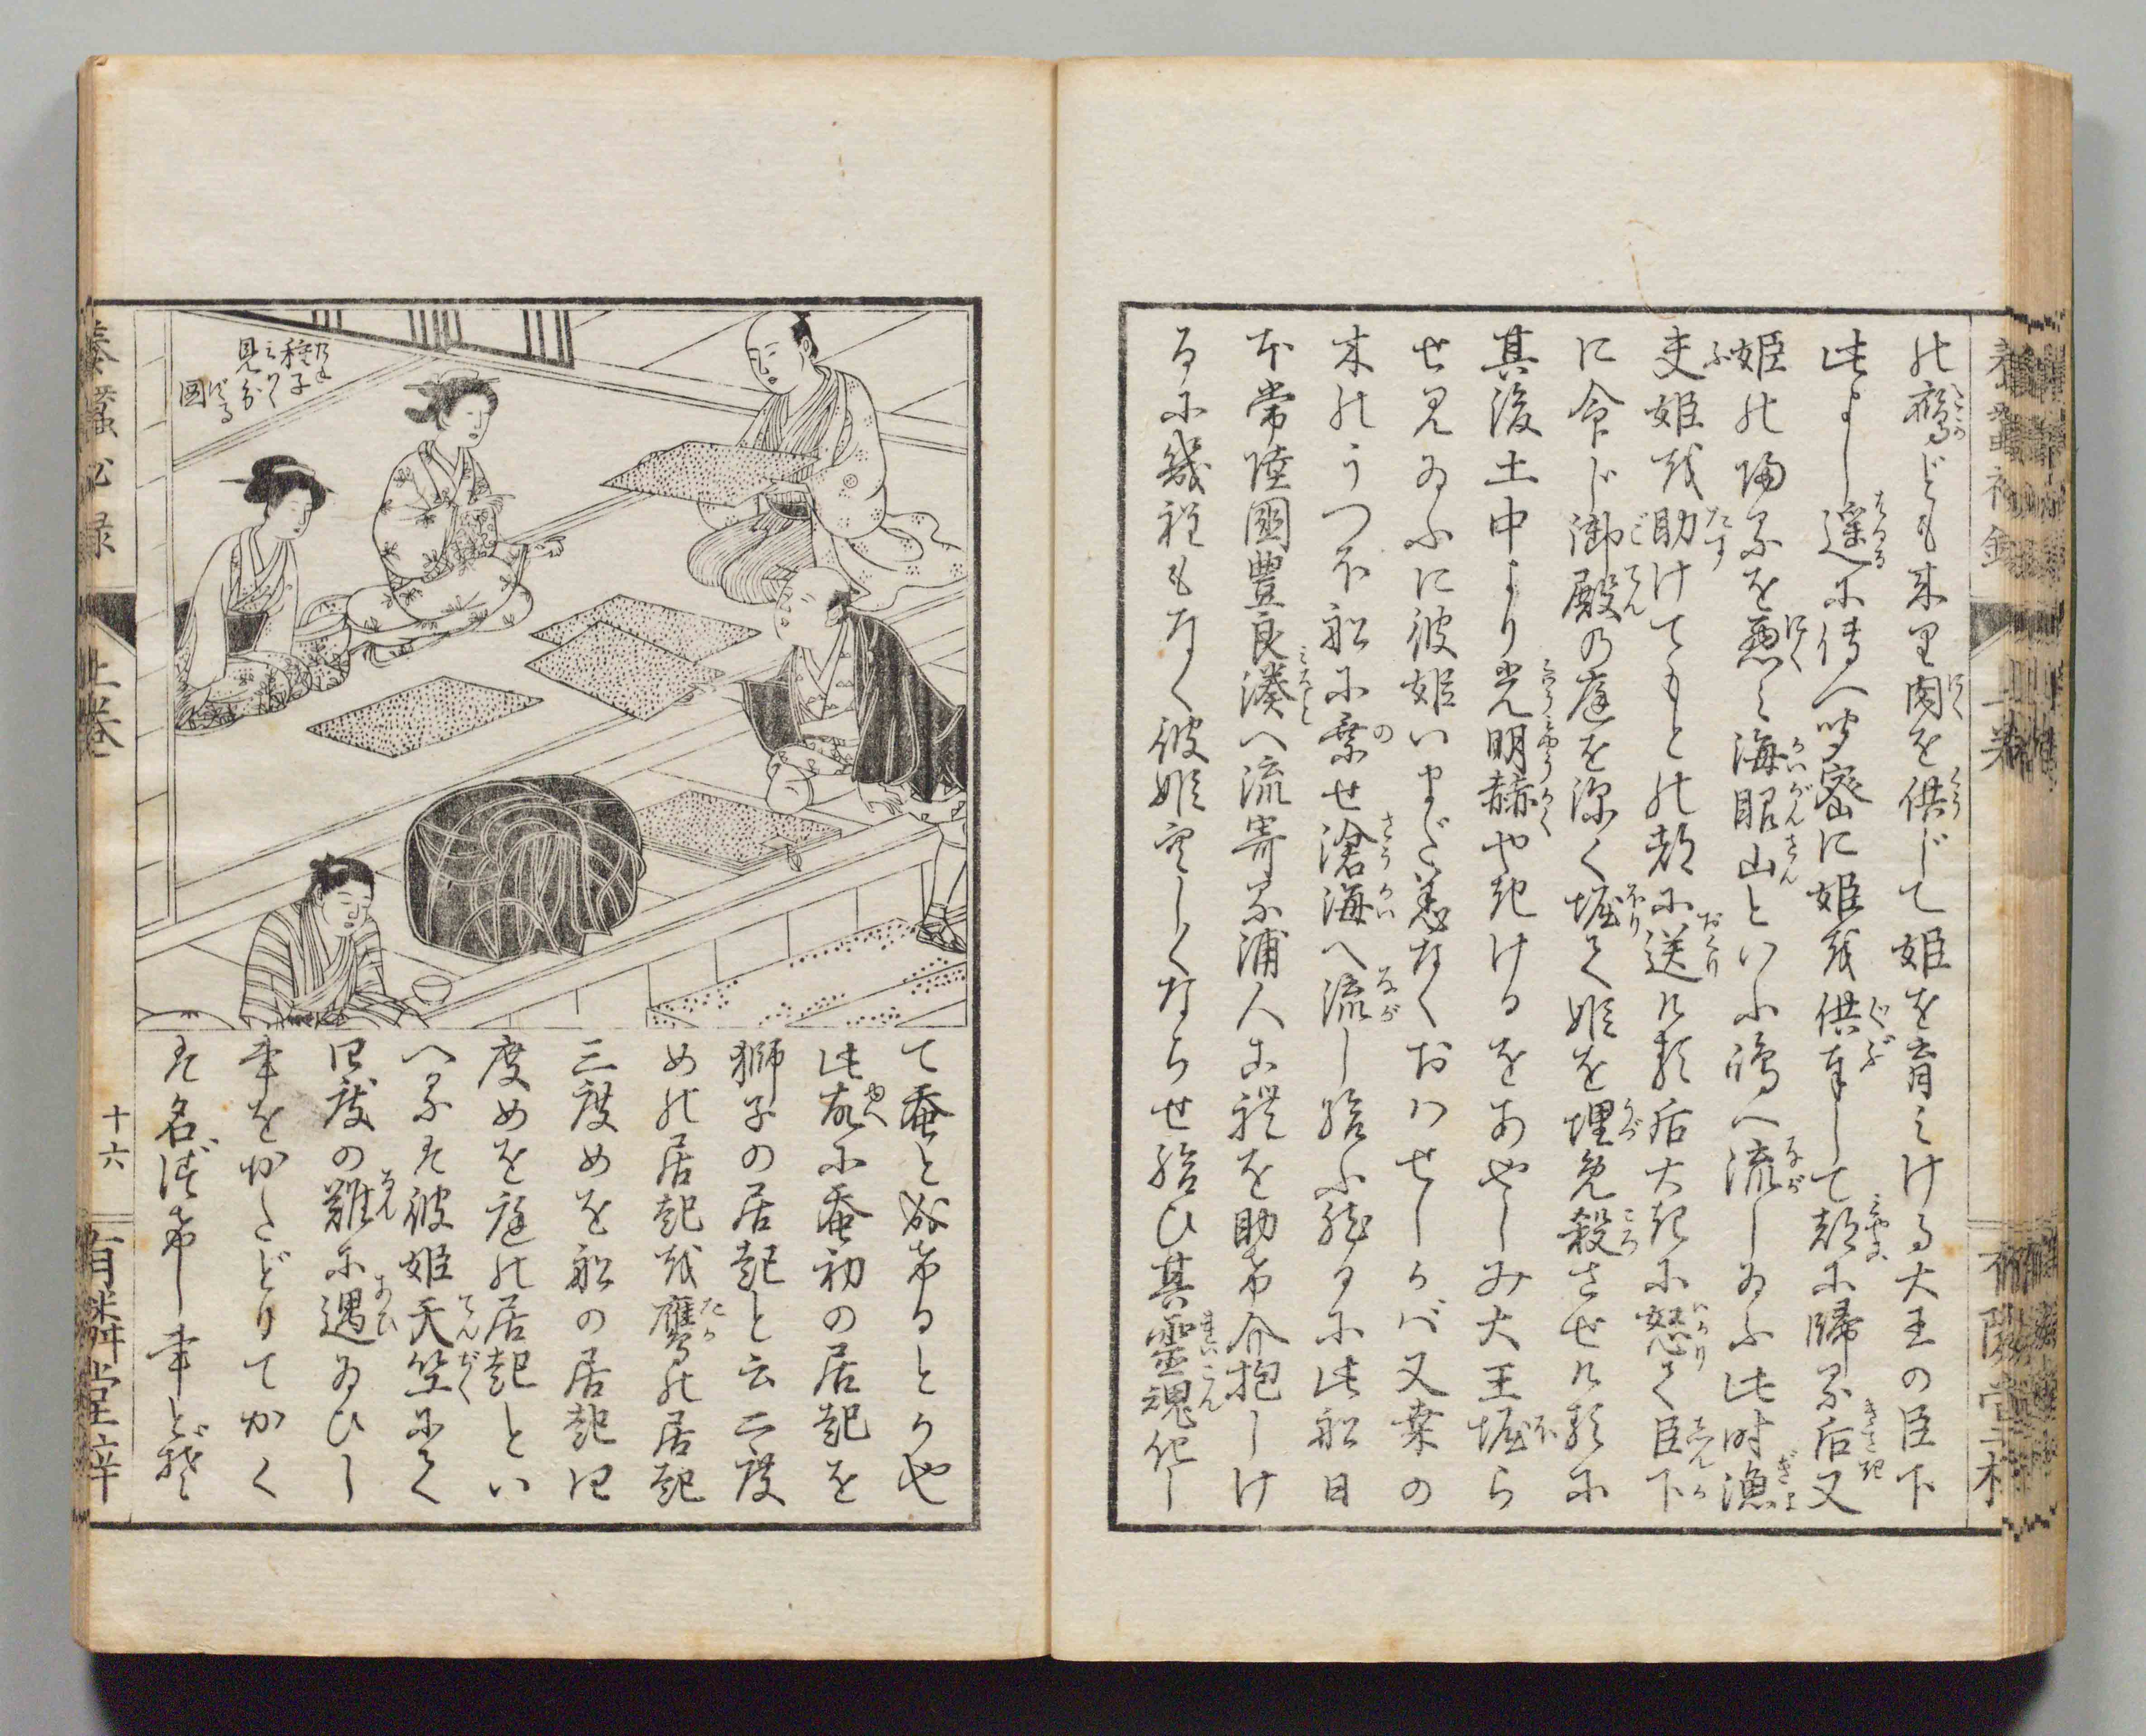 の鷹ども来里肉を供じて姫を育みける大王の臣下
此よし遥に傳へ聞密に姫を供奉して都に歸る后又
姫の帰るを悪み海眼山といふ嶋へ流しゐふ此時漁
夫姫を助けてもとの都に送りける后大きに怒て臣下
に令じ御殿の庭を深く堀て姫を埋め殺させけるに
其後土中より光明赫やきけるをあやしみ大王堀ら
せ見ゐふに彼姫いまだ恙なくおハせしかバ又桑の
木のうつほ舩に乗せ滄海へ流し給ふ然るに此舩日
本常陸國豊良湊へ流寄る浦人これを助け介抱しけ
るに幾程もなく彼姫空しくならせ給ひ其霊魂化し
種子
見分
る
圖
て蚕と成けるとかや
此故に蚕初の居起を
獅子の居起と云二度
めの居起を鷹の居起
三度めを舩の居起四
度めを庭の居起とい
へるは彼姫天竺にて
四度の難に遇ゐひし
事をかたどりてかく
は名づけし事とぞ
養蚕秘録
上巻
十六
有隣堂梓